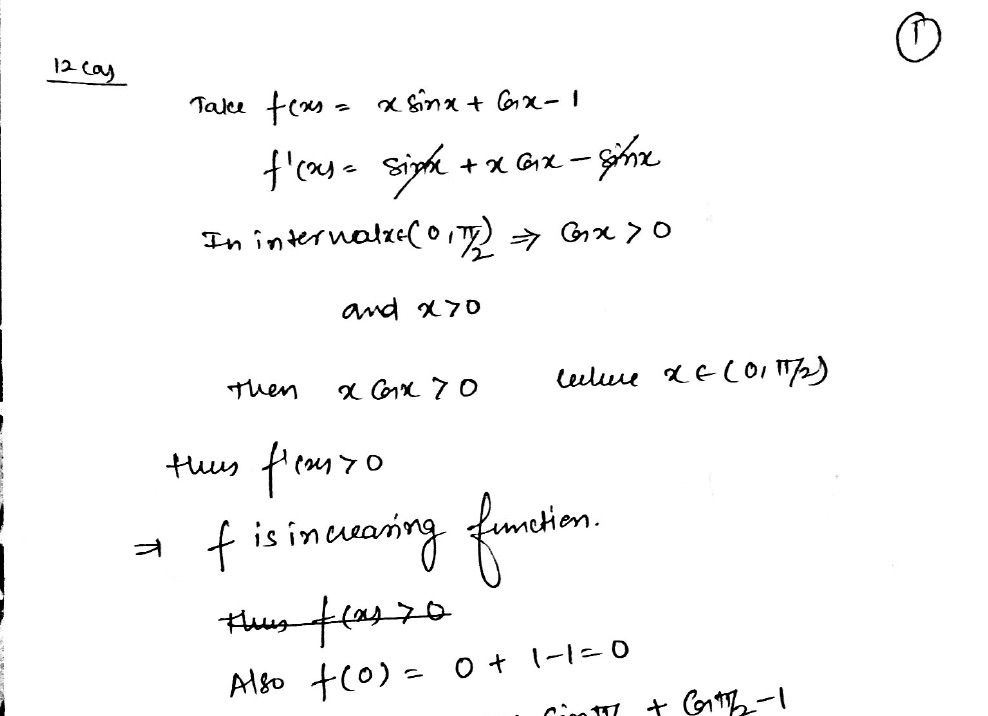 1
12 (a)
Take f(x) = x sinx + Cosx - 1
f'(x) = sinx + x Cosx - sinx
In interval x∈(0,π/2) ⇒ Cosx > 0
and x>0
Then x Cosx > 0 where x ∈ (0, π/2)
thus f'(x) > 0
⇒ f is increasing function.
thus f(x) > 0
Also f(0) = 0 + 1-1=0
Sin π + Cos π/2 - 1